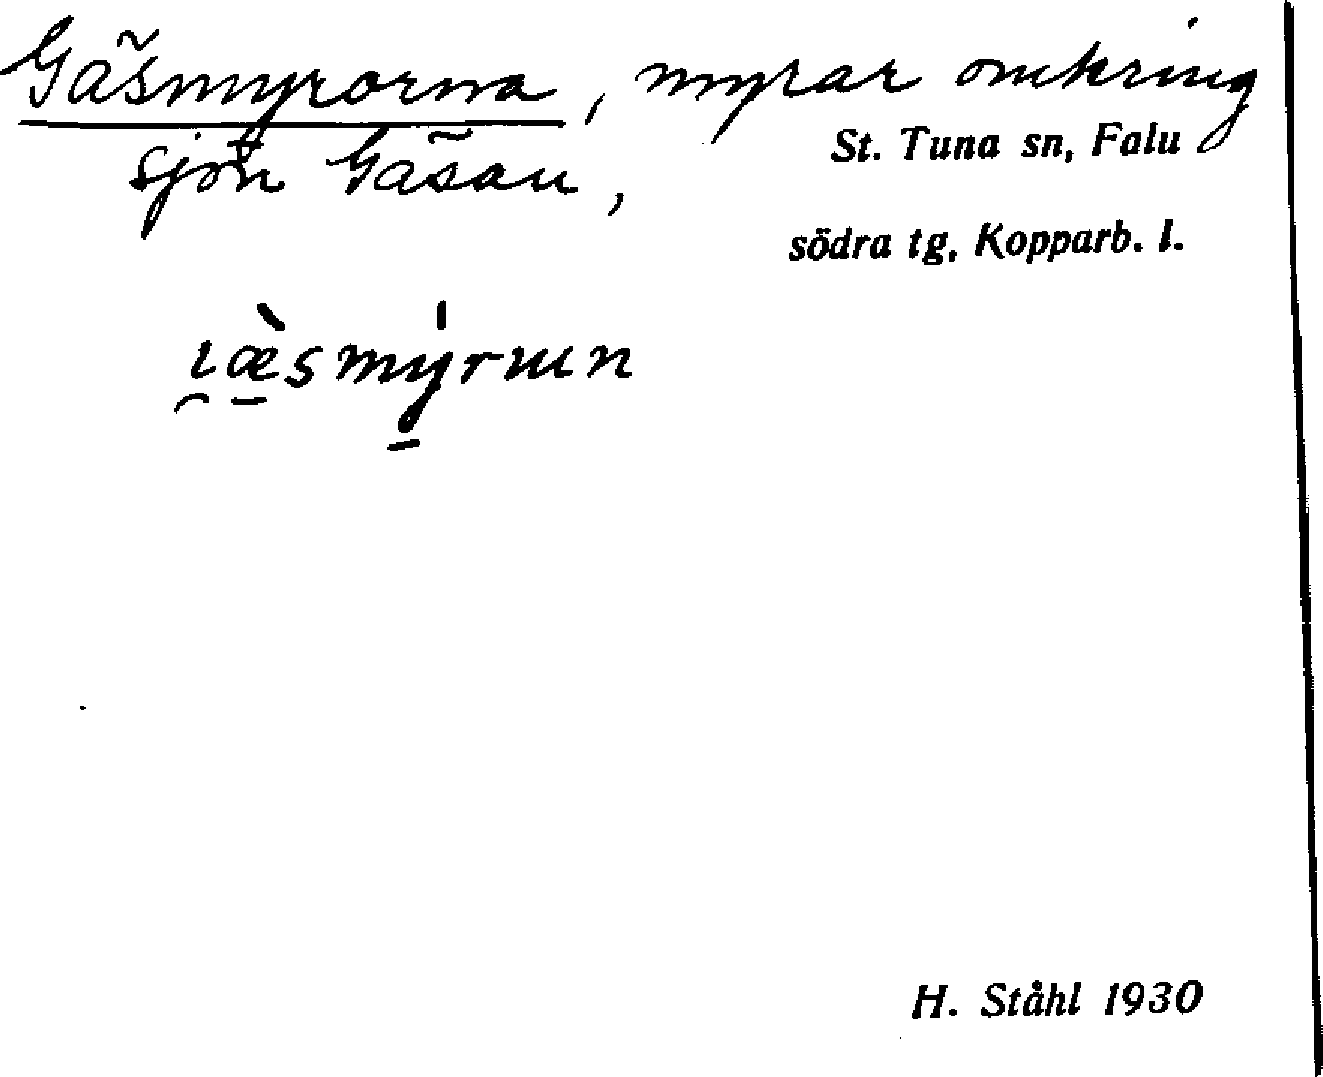 Gäsmyrorna, myrar omkring
sjön Gäsan,
St. Tuna sn, Falu
södra tg, Kopparb. l.
H. Ståhl 1930